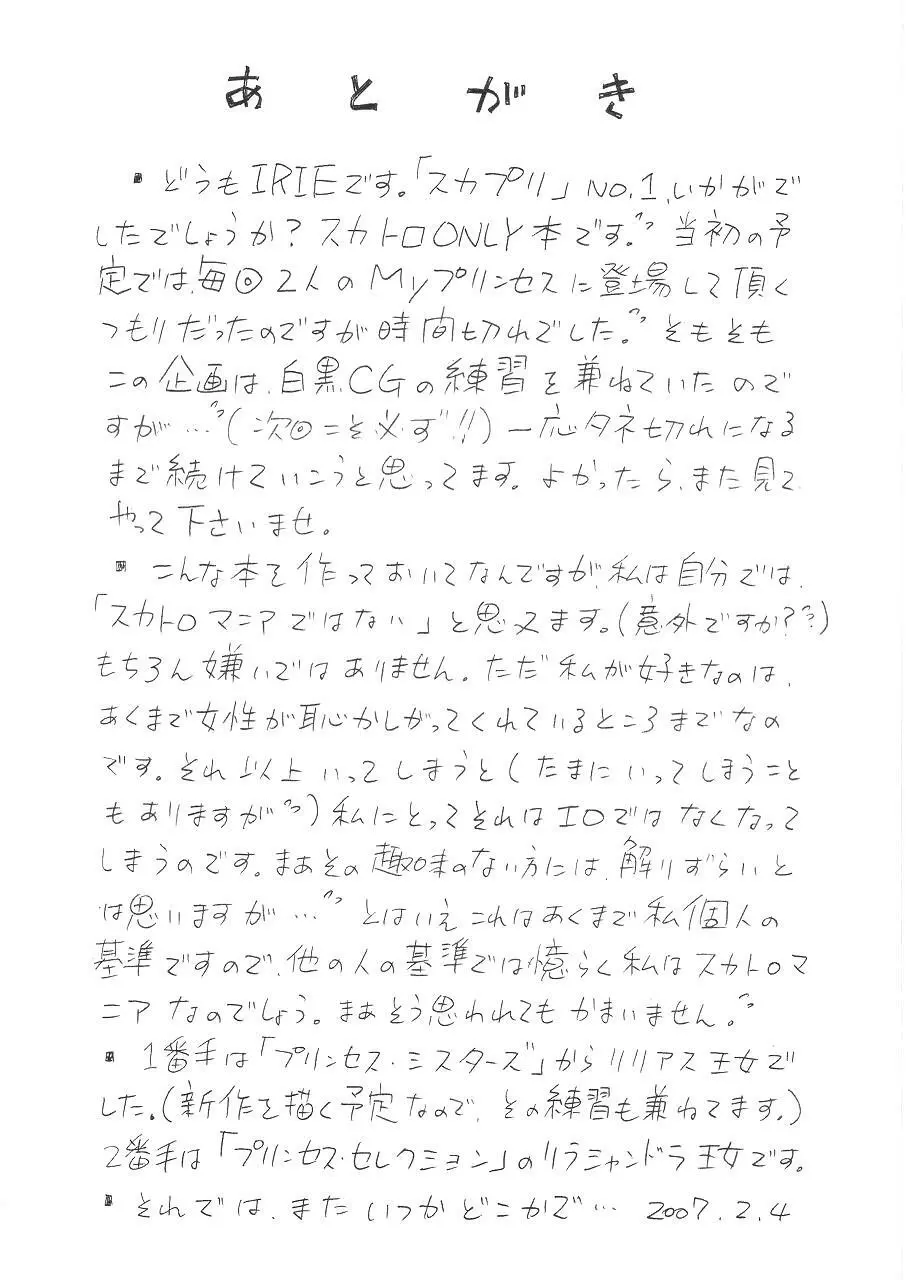 あとがき
▪どうもIRIEです。「スカプリ」NO.1、いかがで
したでしょうか？スカトロONLY本です。〃当初の予
定では、毎回2人のMyプリンセスに登場して頂く
つもりだったのですが時間切れでした。〃そもそも
この企画は、白黒CGの練習を兼ねていたので
すが…〃(次回こそ必ず!!)一応タネ切れになる
まで続けていこうと思ってます。よかったら、また見て
やって下さいませ。
▪こんな本を作っておいてなんですが、私は自分では、
「スカトロマニアではない」と思えます。(意外ですか??)
もちろん嫌いではありません。ただ私が好きなのは、
あくまで女性が恥かしがってくれているところまでなの
です。それ以上いってしまうと(たまにいってしまうこと
もありますが〃)私にとってそれはIOではなくなって
しまうのです。まあその趣味のない方には、解りずらいと
は思いますが…〃とはいえこれはあくまで私個人の
基準ですので、他の人の基準では憶らく私はスカトロマ
ニアなのでしょう。まあそう思われてもかまいません。〃
▪1番手は「プリンセス・ミスターズ」からリリアス王女で
した。(新作を描く予定なので、その練習も兼ねてます。)
2番手は「プリンセス・セレクション」のリラシャンドラ王女です。
▪それでは、またいつかどこかで…2007.2.4